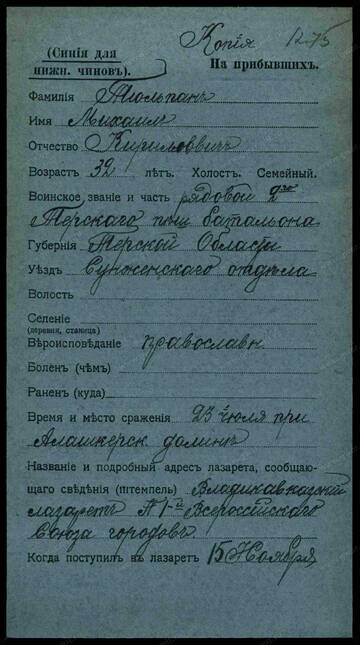 Копія 1275
(Синія для
нижн. чиновъ).
На прибывшихъ.
Фамилія Тюльпанъ
Имя Михаилъ
Отчество Кириловичъ
Возрастъ 32 лѣтъ. Холостъ. Семейный.
Воинское званіе и часть рядовой 2го
Терскаго пѣш батальона
Губернія Терской Области
Уѣздъ Сунженскаго отдѣла
Волость
Селеніе
(деревня, станица)
Вѣроисповѣданіе православн
Боленъ (чѣмъ)
Раненъ (куда)
Время и мѣсто сраженія 23 іюля при
Алашкерск. долинѣ
Названіе и подробный адресъ лазарета, сообщаю-
щаго свѣдѣнія (штемпель) Владикавказскій
лазаретъ №1-й Всероссійскаго
Союза городовъ
Когда поступилъ въ лазаретъ 15 Ноября